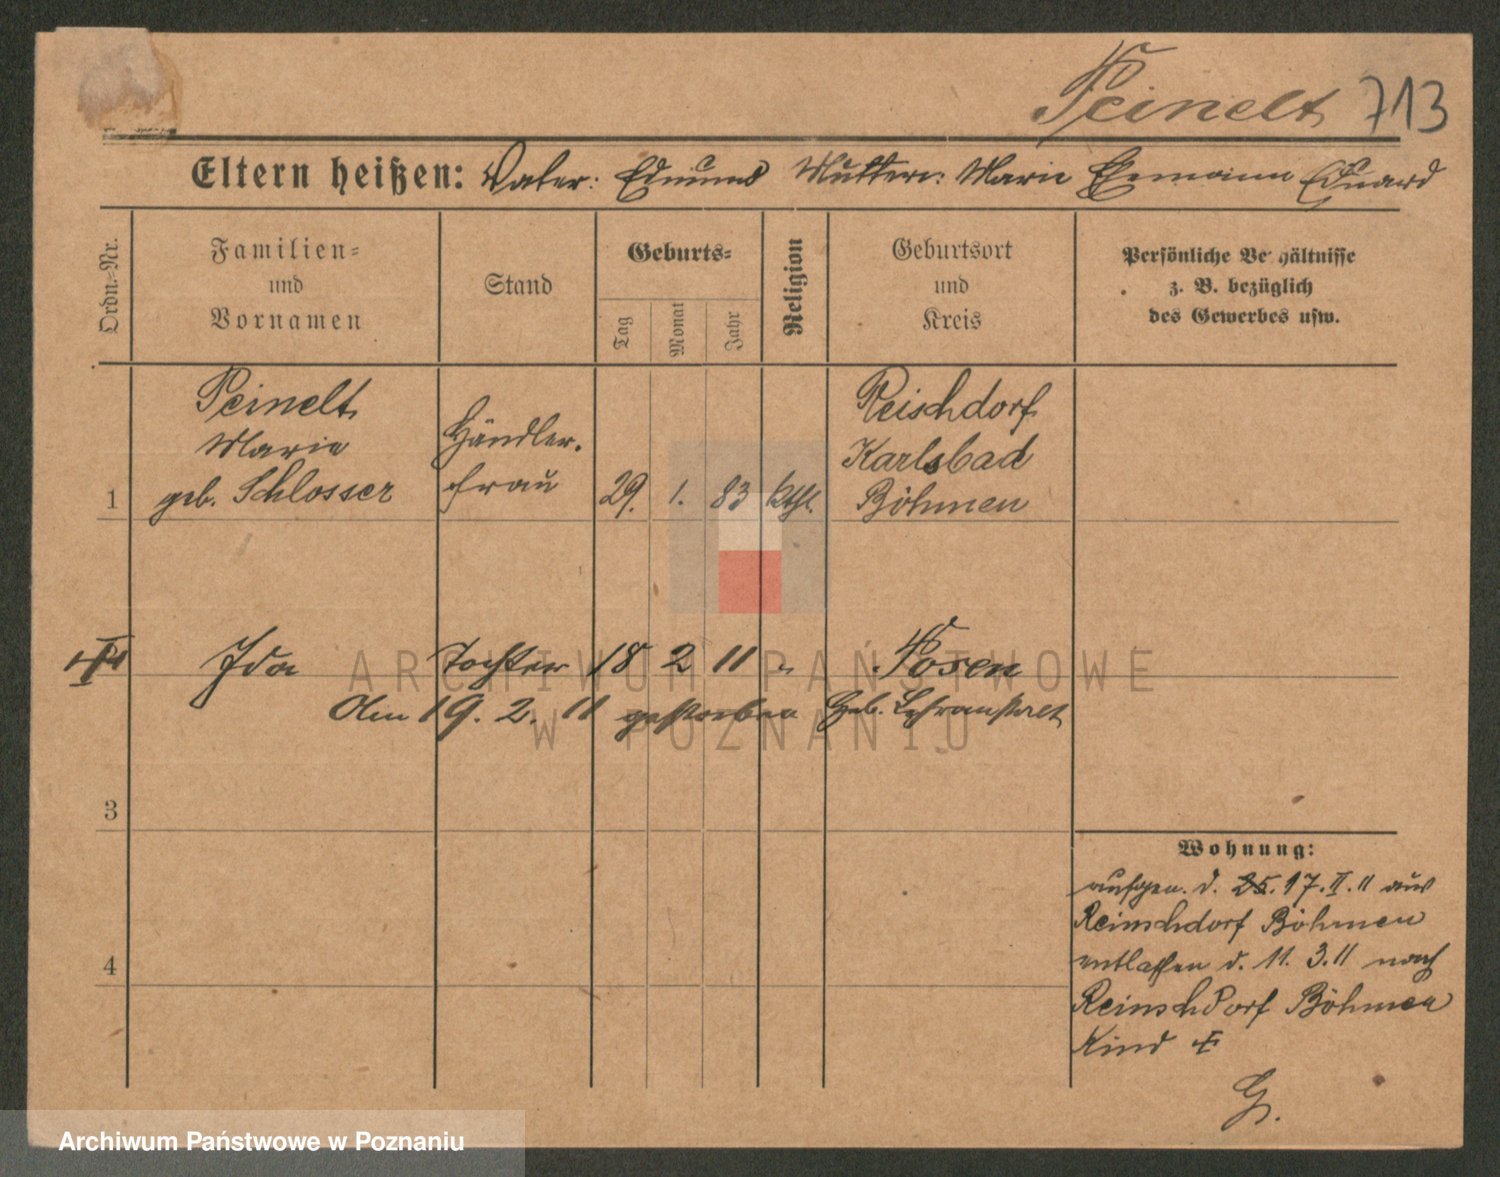 Peinelt 713
Eltern heißen: Vater: Edmund Mutter: Marie Ehemann Eduard
Ordn.-Nr.
Familien- und Vornamen
Stand
Geburts-
Tag Monat Jahr
Religion
Geburtsort und Kreis
Persönliche Verhältnisse
z. B. bezüglich
des Gewerbes usw.
1
Peinelt
Marie
geb. Schlosser
Händler.
frau
29. 1. 83 kthl.
Reischdorf
Karlsbad
Böhmen
Ida Tochter 18 2 11 " Posen
Am 19. 2. 11 gestorben Heb. Lehranstalt
3
4
Wohnung:
aufgen. d. 25. 17. II. 11 aus
Reinschdorf Böhmen
entlassen d. 11. 3. 11 nach
Reinschdorf Böhmen
Kind †
G.
ARCHIWUM PAŃSTWOWE
W POZNANIU
Archiwum Państwowe w Poznaniu